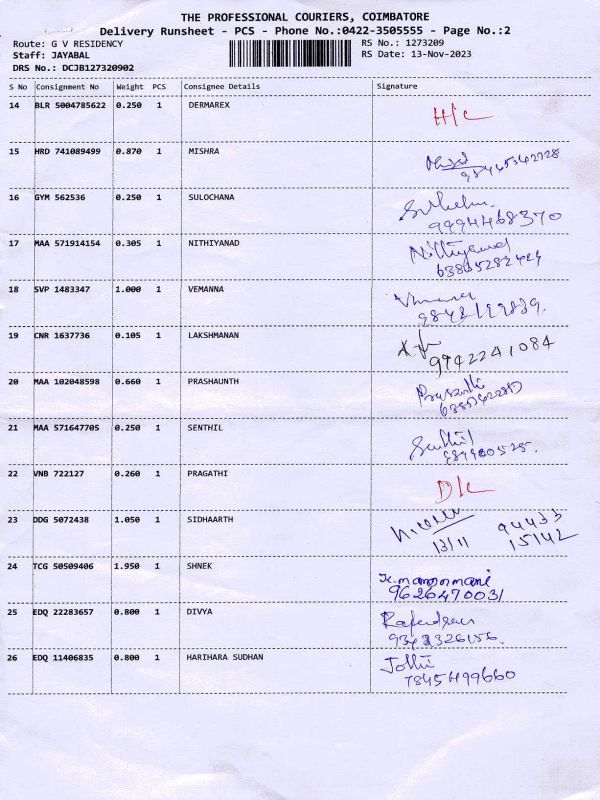 THE PROFESSIONAL COURIERS, COIMBATORE
Delivery Runsheet - PCS - Phone No.:0422-3505555 - Page No.:2
Route: G V RESIDENCY
RS No.: 1273209
Staff: JAYABAL
RS Date: 13-Nov-2023
DRS No.: DCJB127320902
S No Consignment No Weight PCS Consignee Details Signature
14 BLR 5004785622 0.250 1 DERMAREX H/C
15 HRD 741089499 0.870 1 MISHRA
16 GYM 562536 0.250 1 SULOCHANA
9994468370
17 MAA 571914154 0.305 1 NITHIYANAD Nithiyanad
18 SVP 1483347 1.000 1 VEMANNA
19 CNR 1637736 0.105 1 LAKSHMANAN
9942241084
20 MAA 102048598 0.660 1 PRASHAUNTH
21 MAA 571647705 0.250 1 SENTHIL Senthil
22 VNB 722127 0.260 1 PRAGATHI D/C
23 DDG 5072438 1.050 1 SIDHAARTH 94433
13/11 15142
24 TCG 50509406 1.950 1 SHNEK
9626470031
25 EDQ 22283657 0.800 1 DIVYA
26 EDQ 11406835 0.800 1 HARIHARA SUDHAN Jothi
7845499660